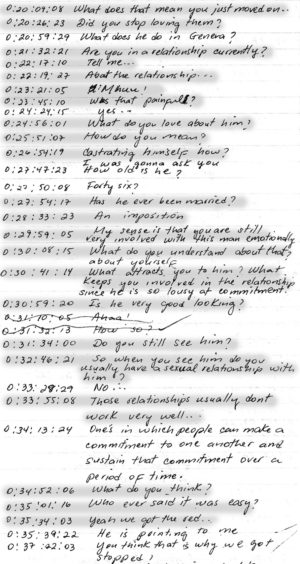 0:20:09:08 What does that mean you just moved on..
0:20:26:23 Did you stop loving them?
0:20:59:29 What does he do in Geneva?
0:21:32:21 Are you in a relationship currently?
0:22:17:10 Tell me...
0:22:19:27 About the relationship...
0:23:21:05 I'M here!
0:23:45:10 Was that painful?
0:24:24:15 yes..
0:24:56:01 What do you love about him?
0:25:51:07 How do you mean?
0:26:54:19 Castrating himself how?
I was gonna ask you
0:27:47:23 How old is he?
0:27:50:08 Forty six?
0:27:54:17 Has he ever been married?
0:28:33:23 An imposition
0:29:59:05 My sense is that you are still
very involved with this man emotionally
0:30:08:15 What do you understand about that?
about yourself
0:30:41:14 What attracts you to him? What
keeps you involved in the relationship
since he is so lousy at commitment.
0:30:59:20 Is he very good looking?
0:31:10:05 Ahaa!
0:31:32:13 How so?
0:31:34:00 Do you still see him?
0:32:46:21 So when you see him do you
usually have a sexual relationship with
him?
0:33:28:29 No...
0:33:55:08 Those relationships usually dont
work very well..
0:34:13:24 Ones in which people can make a
commitment to one another and
sustain that commitment over a
period of time.
0:34:52:06 What do you think?
0:35:01:16 Who ever said it was easy?
0:35:34:03 Yeah we got the red..
0:35:39:22 He is pointing to me
0:37:22:03 You think that is why we got
stopped?